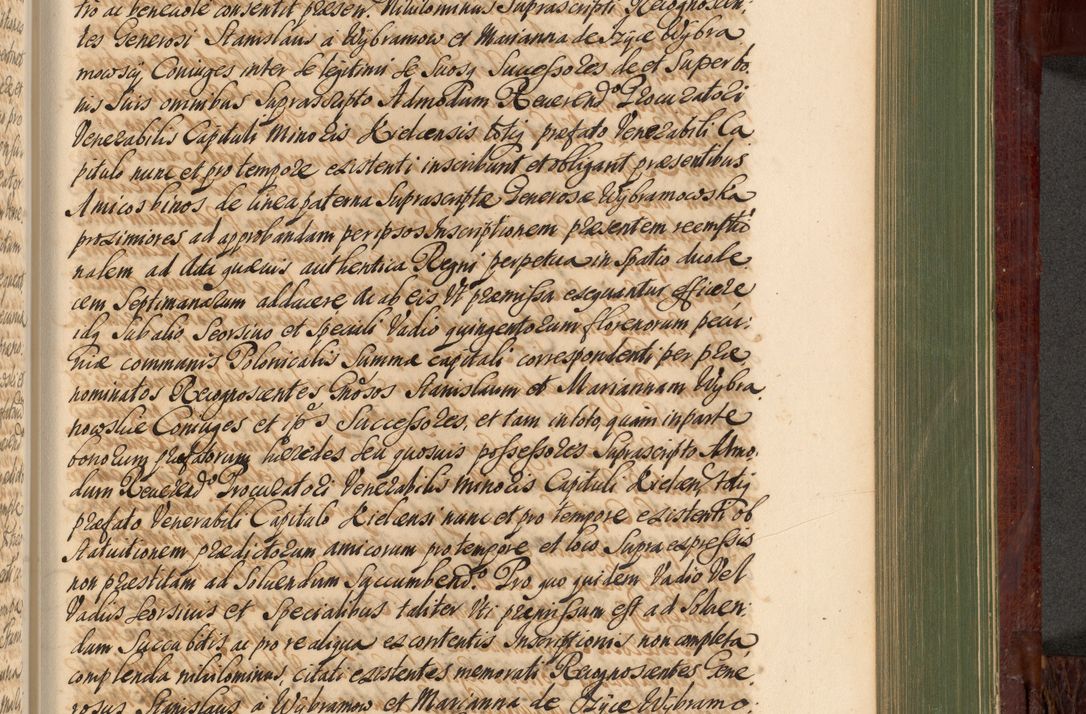 tro ac beneuole consentit præsen. Nihilominus Suprascripti Recognoscen:
tes Generosi Stanislaus a Wybramow et Marianna de Izyce Wybra
mowscy, Coniuges inter se legitimi se Suosq Successores de et Super bo:
nis Suis omnibus Suprascripto Admodum Reuerendo Procuratori
Venerabilis Capituli Minoris Kielcensis totiq præfato Venerabili Ca
pitulo nunc et pro tempore existenti inscribunt et obligant præsentibus
Amicos binos de linea paterna Suprascriptæ Generosæ Wybramowska
proximiores ad approbandam per ipsos Inscriptionem præsentem reempti
nalem ad Acta quæuis authentica Regni perpetua in Spatio duode
cem Septimanarum adducere Ac ab eis Vt præmissa exequantur efficere
idq Sub alio Seorsiuo et Speciali Vadio quingentorum florenorum pecu:
niæ communis Polonicalis Summæ capitali correspondenti per præ
nominatos Recognoscentes Gnosos Stanislaum et Mariannam Wybra
nowskie Coniuges et ipõ s Successores, et tam in toto, quam in parte
bonorum præfatorum hæredes seu quosuis possessores Suprascripto Admo:
dum Reuerendo Procuratori Venerabilis Minoris Capituli Kielcen, totiq
præfato Venerabili Capitulo Kielcensi nunc et pro tempore existenti ob
Statuitionem prædictorum amicorum pro tempore et loco Supra expressis
non præstitam ad Soluendum Succumbendo. Pro quo quidem Vadio Vel
Vadiis Seorsiuis et Specialibus taliter Vti præmissum est ad Soluen
dum Succubitis ac pro re aliqua ex contentis Inscriptionis non completa
complenda nihilominus, citati existentes memorati Recognoscentes Gene
rosus Stanislaus a Wybramow et Marianna de Izyce Wybramo: